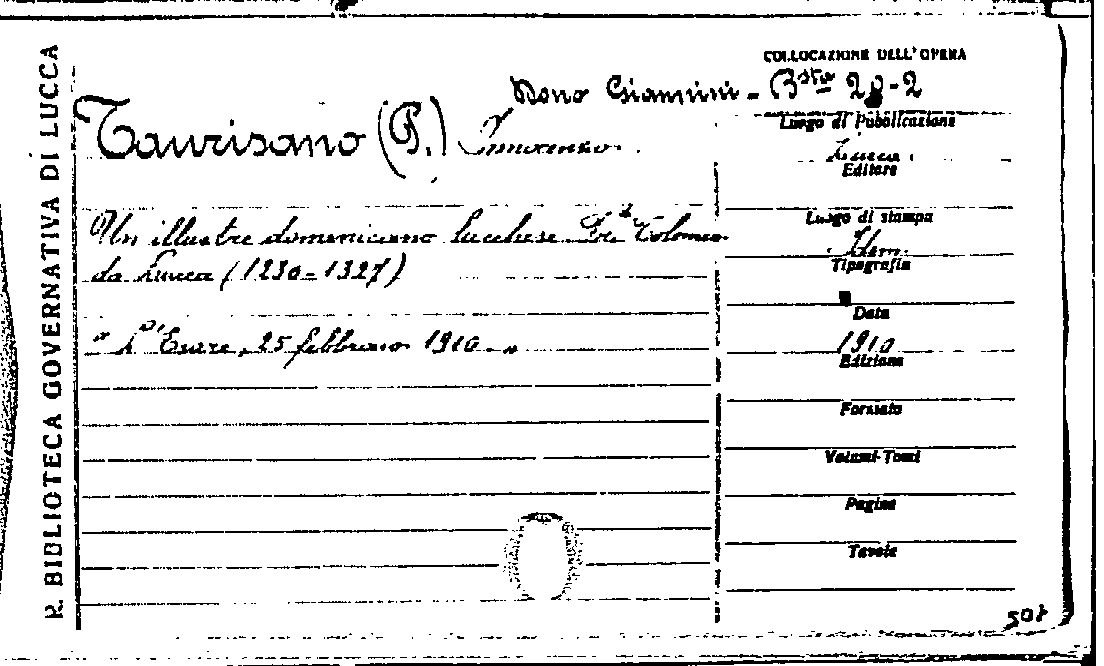 R. BIBLIOTECA GOVERNATIVA DI LUCCA
COLLOCAZIONE DELL'OPERA
Dono Giannini - Bsta 20-2
Taurisano (P.) Innocenzo.
Un illustre domenicano lucchese Fr. Tolomeo
da Lucca (1230-1327)
"L'Esare, 25 febbraio 1910."
Luogo di Pubblicazione
Lucca.
Editore
Luogo di stampa
Idem.
Tipografia
Data
1910
Edizione
Formato
Volumi-Tomi
Pagine
Tavole